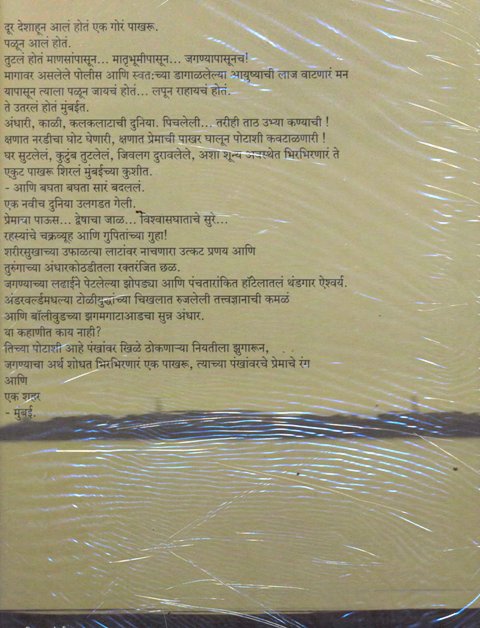 दूर देशाहून आलं होतं एक गोरं पाखरू.
पळून आलं होतं.
तुटलं होतं माणसांपासून... मातृभूमीपासून... जगण्यापासूनच!
मागावर असलेले पोलीस आणि स्वत:च्या डागाळलेल्या आयुष्याची लाज वाटणारं मन
यापासून त्याला पळून जायचं होतं... लपून राहायचं होतं.
ते उतरलं होतं मुंबईत.
अंधारी, काळी, कलकलाटाची दुनिया. पिचलेली... तरीही ताठ उभ्या कण्याची !
क्षणात नरडीचा घोट घेणारी, क्षणात प्रेमाची पाखर घालून पोटाशी कवटाळणारी !
घर सुटलेलं, कुटुंब तुटलेलं, जिवलग दुरावलेले, अशा शून्य अवस्थेत भिरभिरणारं ते
एकुट पाखरू शिरलं मुंबईच्या कुशीत.
- आणि बघता बघता सारं बदललं.
एक नवीच दुनिया उलगडत गेली.
प्रेमाचा पाऊस... द्वेषाचा जाळ... विश्वासघाताचे सुरे...
रहस्यांचे चक्रव्यूह आणि गुपितांच्या गुहा!
शरीरसुखाच्या उफाळत्या लाटांवर नाचणारा उत्कट प्रणय आणि
तुरुंगाच्या अंधारकोठडीतला रक्तरंजित छळ.
जगण्याच्या लढाईने पेटलेल्या झोपड्या आणि पंचतारांकित हॉटेलातलं थंडगार ऐश्वर्य.
अंडरवर्ल्डमधल्या टोळीयुद्धांच्या चिखलात रुजलेली तत्त्वज्ञानाची कमळं
आणि बॉलीवुडच्या झगमगाटाआडचा सुन्न अंधार.
या कहाणीत काय नाही?
तिच्या पोटाशी आहे पंखांवर खिळे ठोकणाऱ्या नियतीला झुगारून,
जगण्याचा अर्थ शोधत भिरभिरणारं एक पाखरू, त्याच्या पंखांवरचे प्रेमाचे रंग
आणि
एक शहर
- मुंबई.